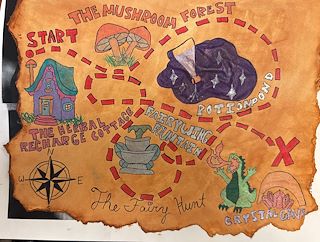 THE MUSHROOM FOREST
START
POTION POND
THE HERBAL
RECHARGE COTTAGE
FAIRYLING
FOUNTAIN
X
W E
CRYSTAL CAVE
The Fairy Hunt